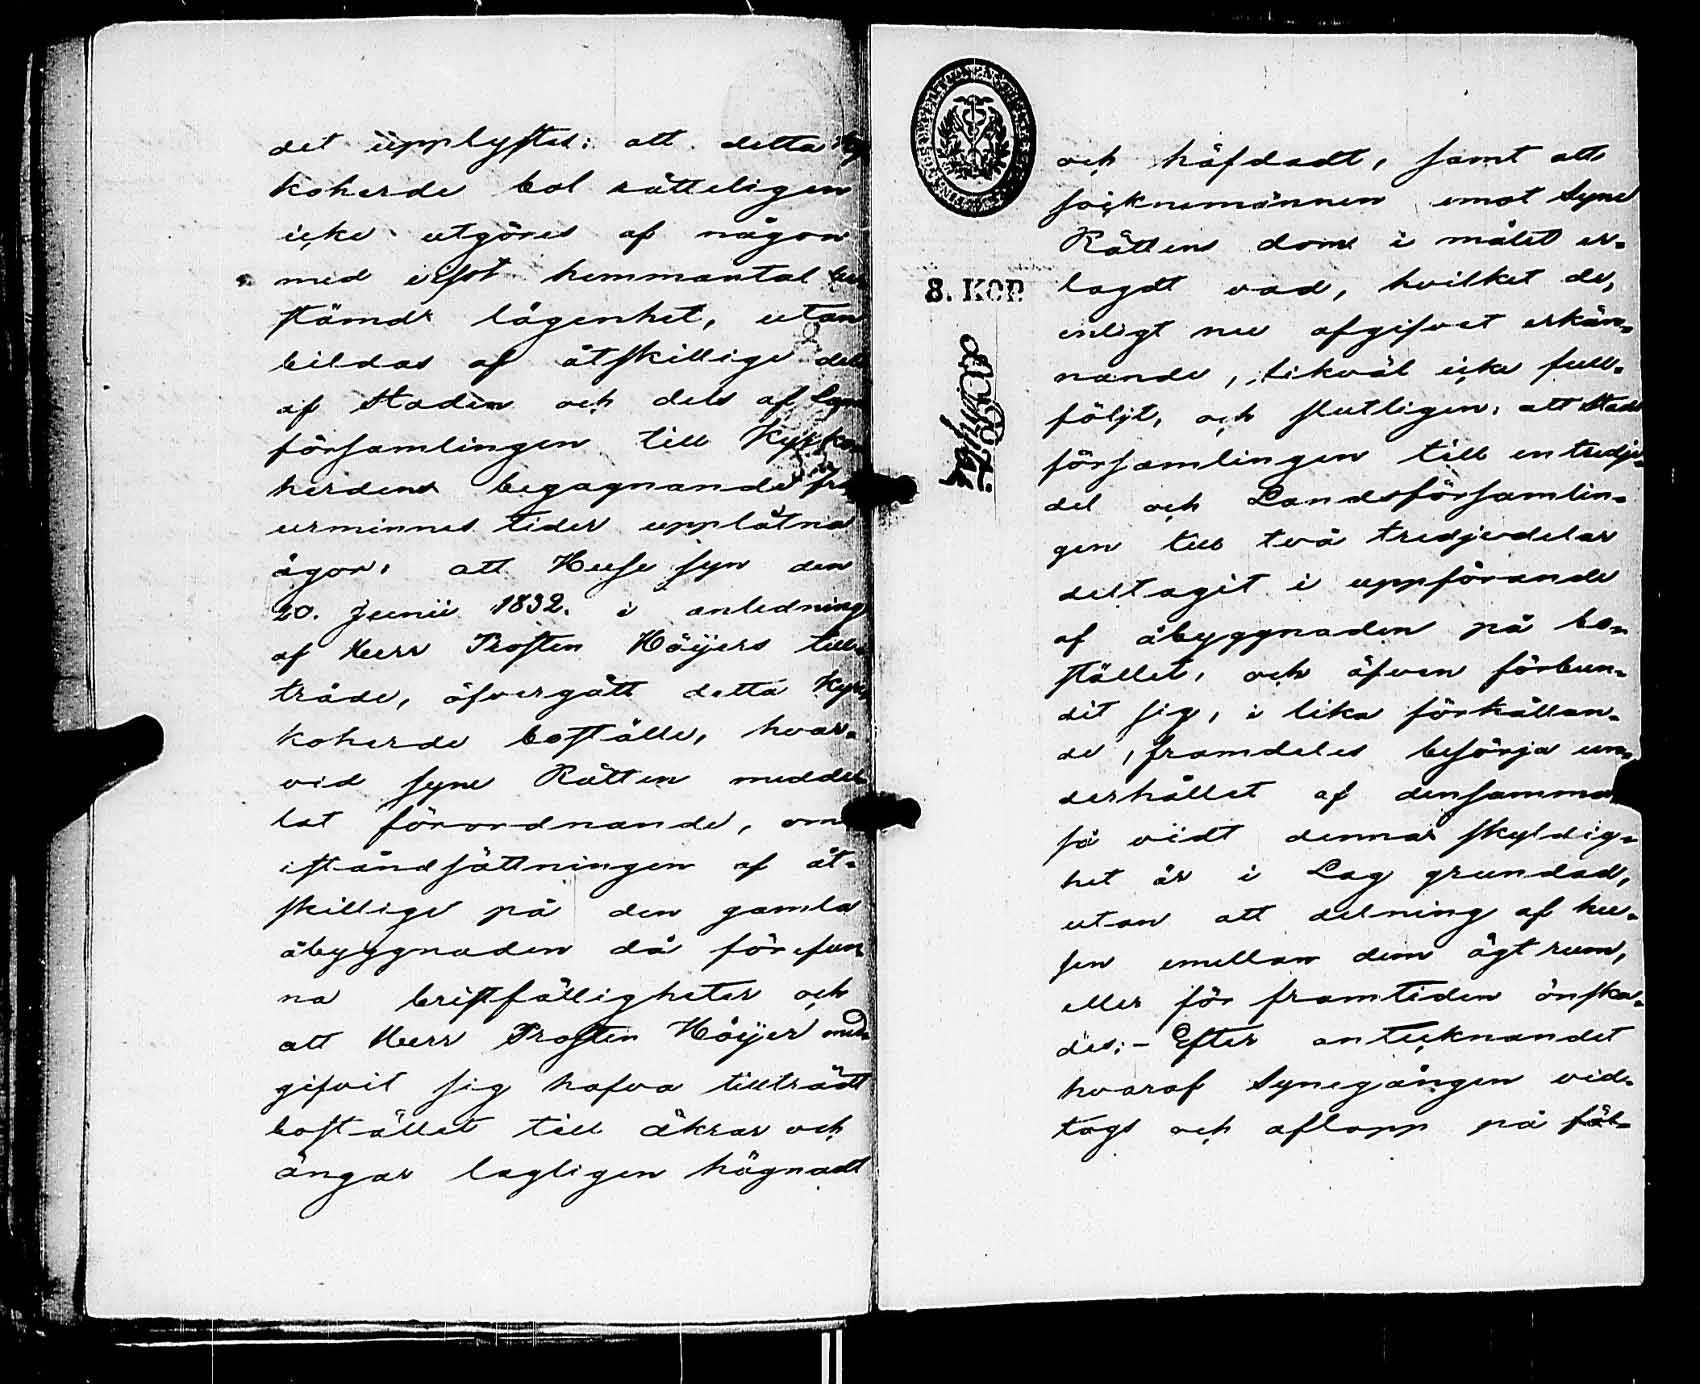 det upplystes: att detta Ky
koherde bol rätteligen
icke utgöres af någon
med visst hemmantal be-
stämd lägenhet, utan
bildas af åtskillige dels
af Staden och dels af Lands
församlingen till Kyrko
herdens begagnande från
urminnes tider upplåtna
ägor; att Huse syn den
20. Junii 1832. i anledning
af Herr Prosten Höijers till-
träde, öfvergått detta Kyr-
koherde boställe, hvar-
vid Syne Rätten medde-
lat förordnande, om
iståndsättningen af åt-
skillige på den gamla
åbyggnaden då förefun-
na bristfälligheter och
att Herr Prosten Höijer med-
gifvit sig hafva tillträdt
bostället till åkrar och
ängar lagligen hägnadt
8. KOP.
och häfdadt, samt att
socknemännen emot Syne
Rättens dom i målet er-
lagdt vad, hvilket de,
enligt nu afgifvet erkän-
nande, likväl icke full-
följt, och slutligen: att Stads
församlingen till en tredje-
del och Landsförsamlin-
gen till två tredjedelar
deltagit i uppförande
af åbyggnaden på bo-
stället, och äfven förbun-
dit sig, i lika förhållan-
de, framdeles besörja un-
derhållet af densamma
så vidt denna skyldig-
het är i Lag grundad,
utan att delning af hu-
sen emellan dem ägt rum,
eller för framtiden önska-
des;- Efter antecknandet
hvaraf Synegången vid-
togs och aflopp på föl-